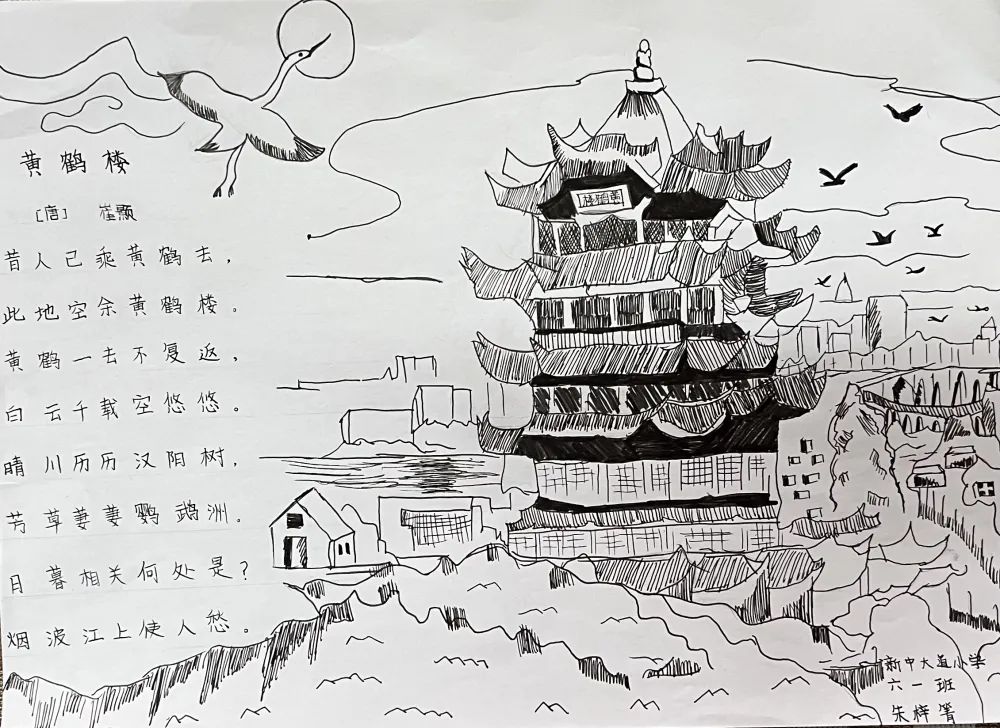 黄鹤楼
[唐] 崔颢
昔人已乘黄鹤去,
此地空余黄鹤楼。
黄鹤一去不复返,
白云千载空悠悠。
晴川历历汉阳树,
芳草萋萋鹦鹉洲。
日暮相关何处是?
烟波江上使人愁。
黄鹤楼
新中大道小学
六一班
朱梓箐